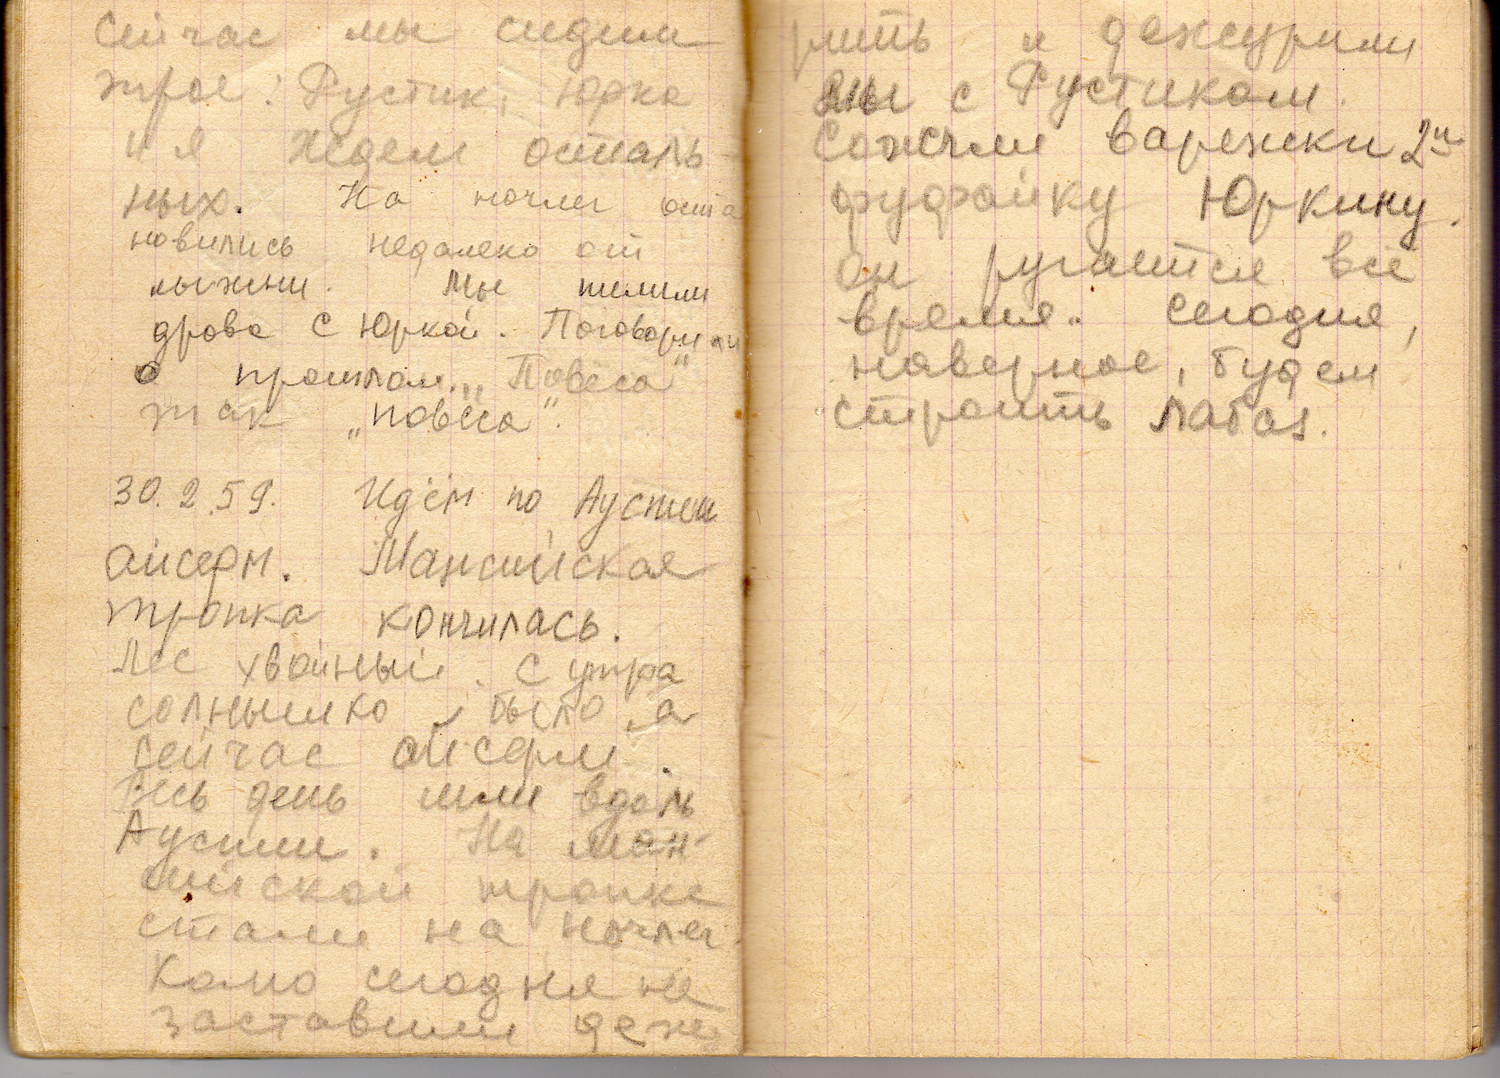 Сейчас мы сидим
трое: Рустик, Юрка
и я ждем осталь-
ных. На ночлег оста
новились недалеко от
лыжни. Мы пилили
дрова с Юркой. Поговорили
о прошлом. „Повеса"
так „повеса".
30.2.59. Идём по Ауспии
айсерм. Мансийская
тропка кончилась.
Лес хвойный. С утра
солнышко было, а
сейчас айсерм.
Весь день шли вдоль
Ауспии. На ман-
сийской тропке
стали на ночлег.
Колмо сегодня не
заставили дежу
рить и дежурили
мы с Рустиком.
Сожгли варежки 2ю
фуфайку Юркину.
Он ругается всё
время. Сегодня,
наверное, будем
строить лабаз.